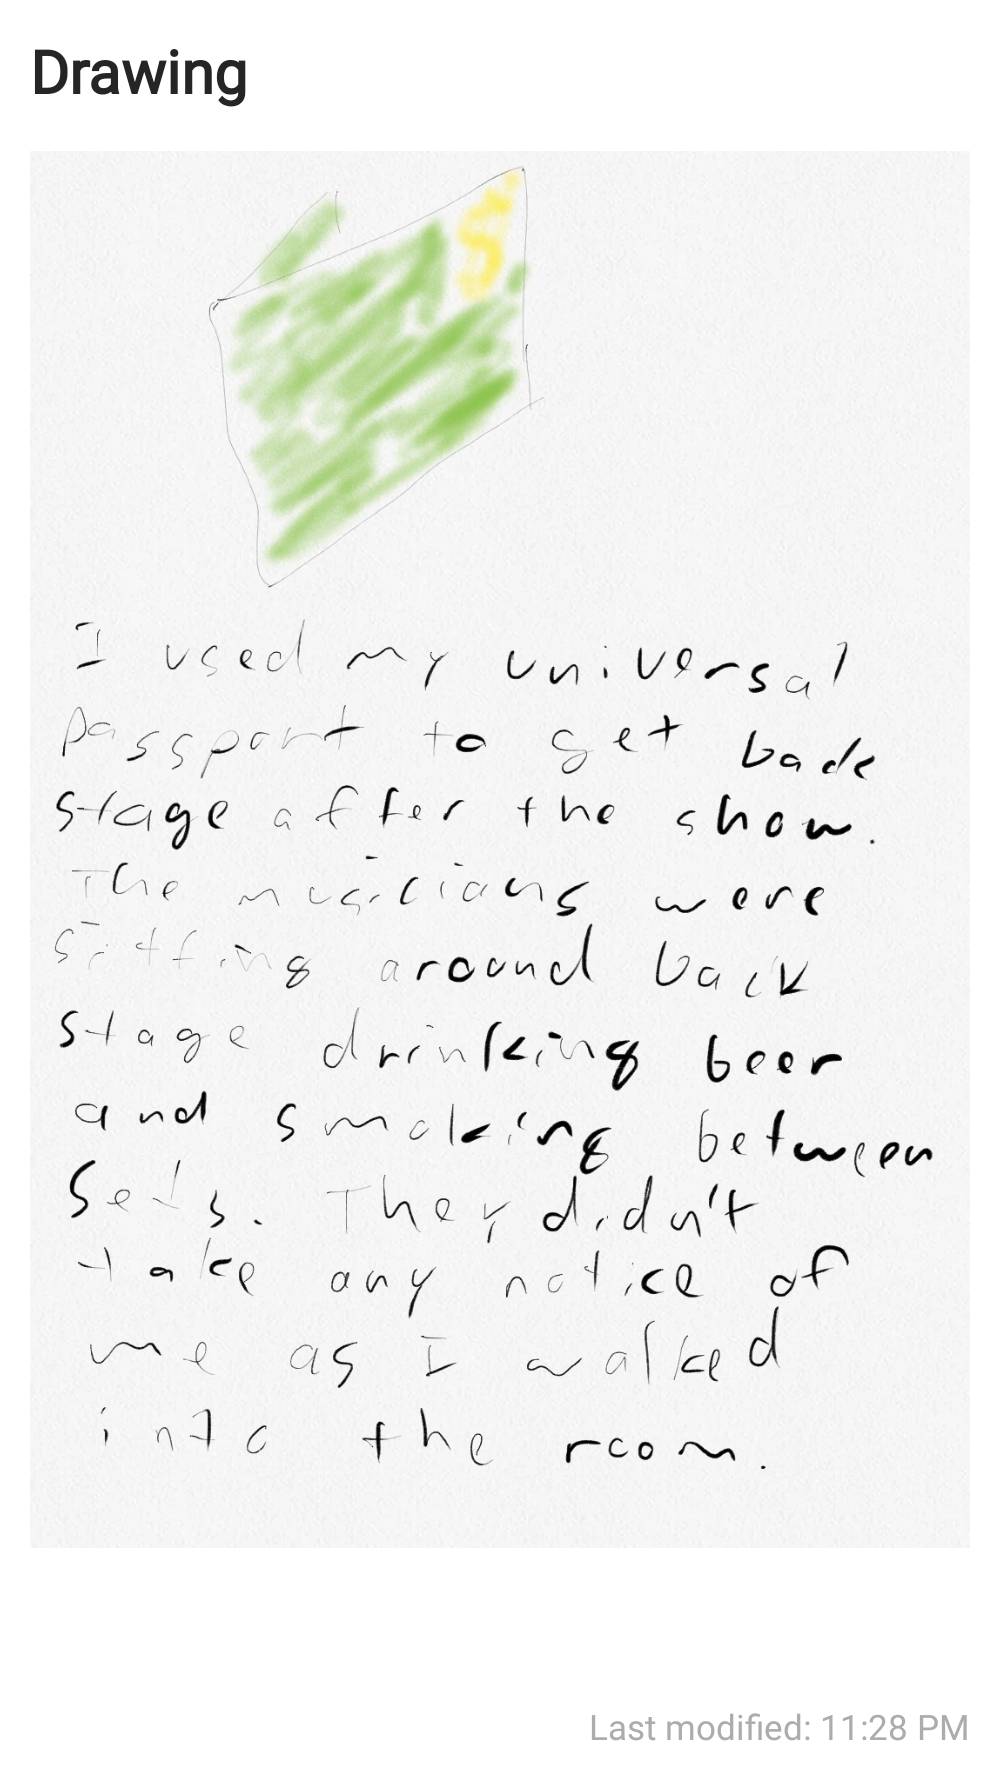 Drawing
I used my universal
passport to get back
stage after the show.
The musicians were
sitting around back
stage drinking beer
and smoking between
sets. They didn't
take any notice of
me as I walked
into the room.
Last modified: 11:28 PM